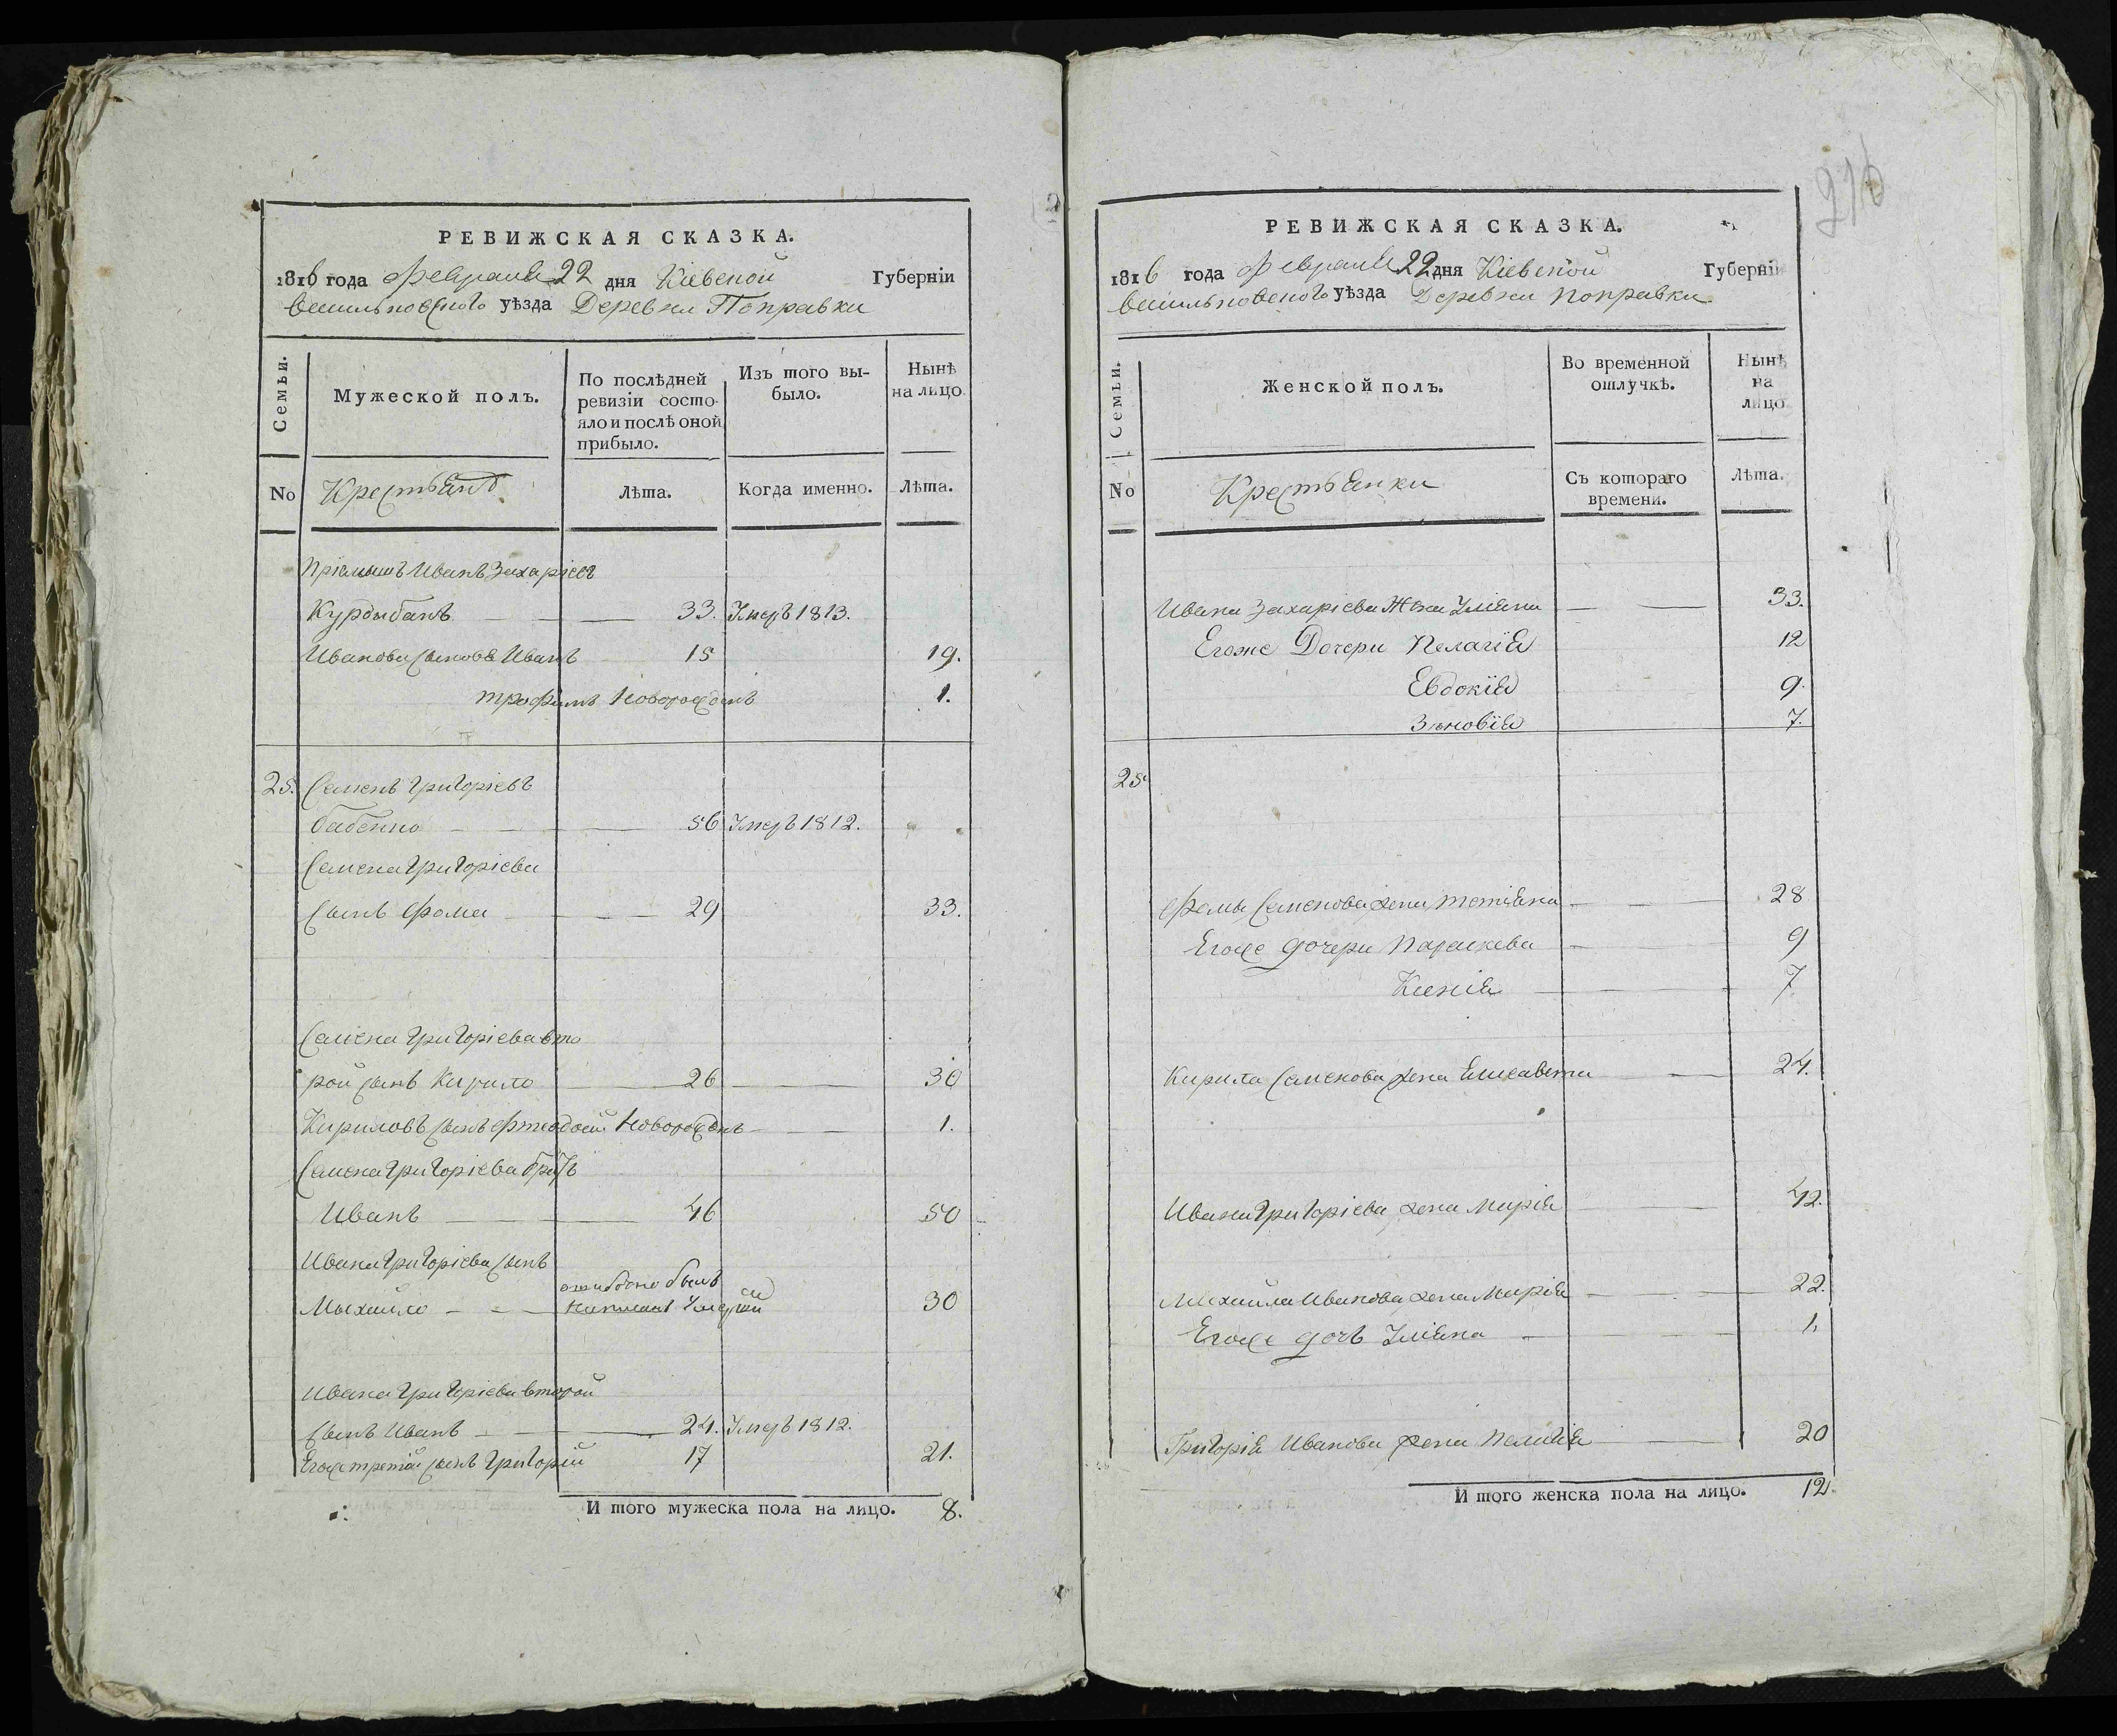 РЕВИЖСКАЯ СКАЗКА.
1816 года Февраля 22 дня Кіевской Губерніи
васильковского уѣзда Деревни Поправки
Семьи.
Мужеской полъ.
По послѣдней
ревизіи состо-
яло и послѣ оной
прибыло.
Изъ того вы-
было.
Нынѣ
на лицо
No
Крестьянъ
Лѣта.
Когда именно.
Лѣта.
Пріємышъ Иванъ Захаріевъ
Курдыбанъ 33. Умеръ 1813.
Иванови сыновя Иванъ 15 19.
трофимъ новорожденъ 1.
25. Семенъ Григоріевъ
бабенко 56 Умеръ 1812.
Семена Григоріева
сынъ Фома 29 33.
Семена Григоріева вто
рой сынъ Кирило 26 30
Кириловъ сынъ Фтеодосій новорожденъ 1.
Семена Григоріева братъ
Иванъ 46 50
Ивана Григоріева сынъ
ошибочно былъ
Мыхайло написанъ Умершим 30
Ивана Григоріева второй
сынъ Иванъ 24. Умеръ 1812.
Егоже третій сынъ Григорій 17 21.
И того мужеска пола на лицо. 8.
216
РЕВИЖСКАЯ СКАЗКА.
1816 года Февраля 22 дня Кіевской Губерніи
васильковского уѣзда Деревни поправки
Семьи.
Женской полъ.
Во временной
отлучкѣ.
Нынѣ
на
лицо
No
Крестьянки
Съ котораго
времени.
Лѣта.
Ивана Захаріева Жена Уліяна 33.
Егоже Дочери Пелагія 12
Евдокія 9.
Зѣновія 7.
25
Фомы Семенова жена тетіяна 28
Егоже дочери Параскева 9
Ксенія 7
Кирила Семенова жена Елисавета 24.
Ивана Григоріева жена Марія 42.
Михайла Иванова жена Марія 22.
Егоже дочь Уліяна 1.
Григорія Иванова жена Пелагія 20
И того женска пола на лицо. 12.